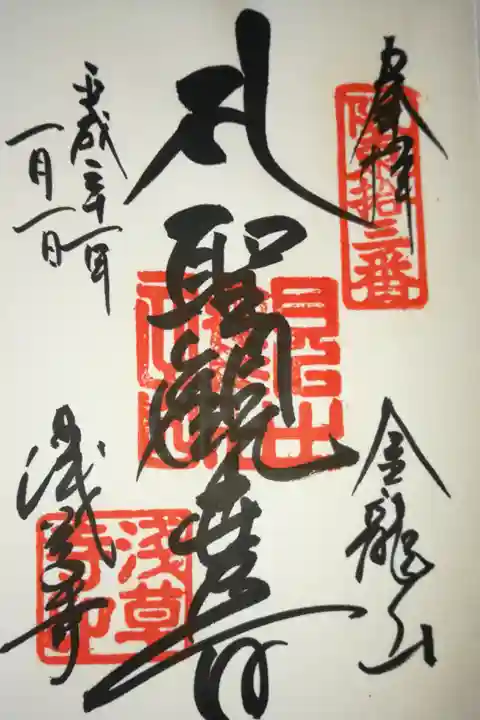 奉拝
坂東拾三番
金龍山
聖観音
平成二十一年
一月一日
浅草寺
浅草寺印